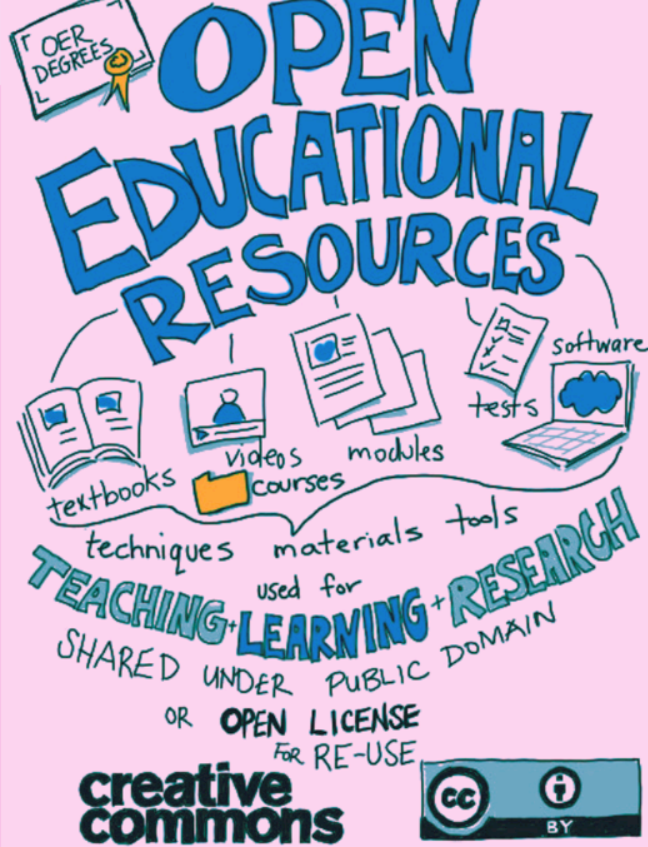 OER
DEGREES
OPEN
EDUCATIONAL
RESOURCES
software
tests
videos
modules
textbooks
courses
techniques materials tools
used for
TEACHING + LEARNING + RESEARCH
SHARED UNDER PUBLIC DOMAIN
OR OPEN LICENSE
FOR RE-USE
creative
commons
cc
BY